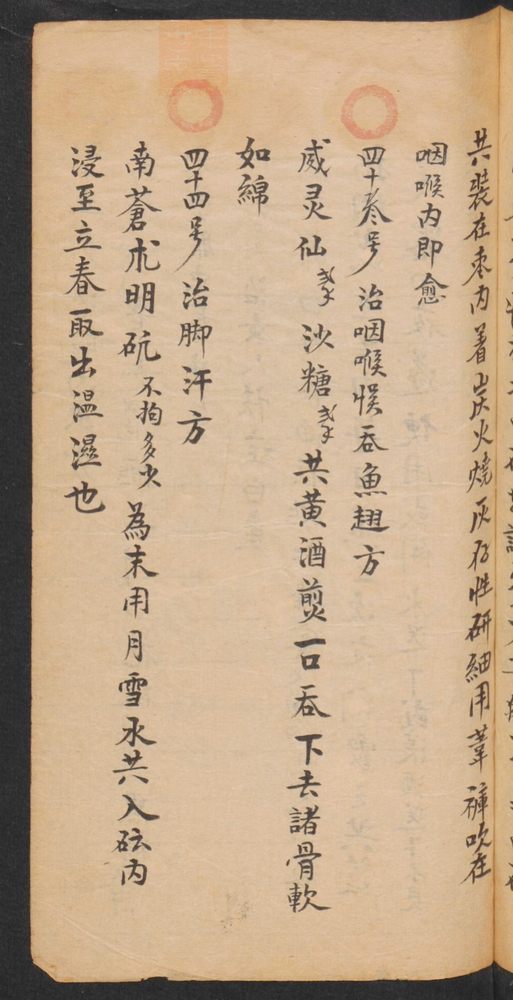 共裝在枣内着炭火燒灰存性研細用葦裤吹在
咽喉内即愈
四十叁号 治咽喉悮吞魚翅方
威灵仙 沙糖 共黄酒煎一口吞下去諸骨軟
如綿
四十四号 治脚汗方
南蒼朮明矾不拘多少為末用月雪水共入砝内
浸至立春取出温濕也